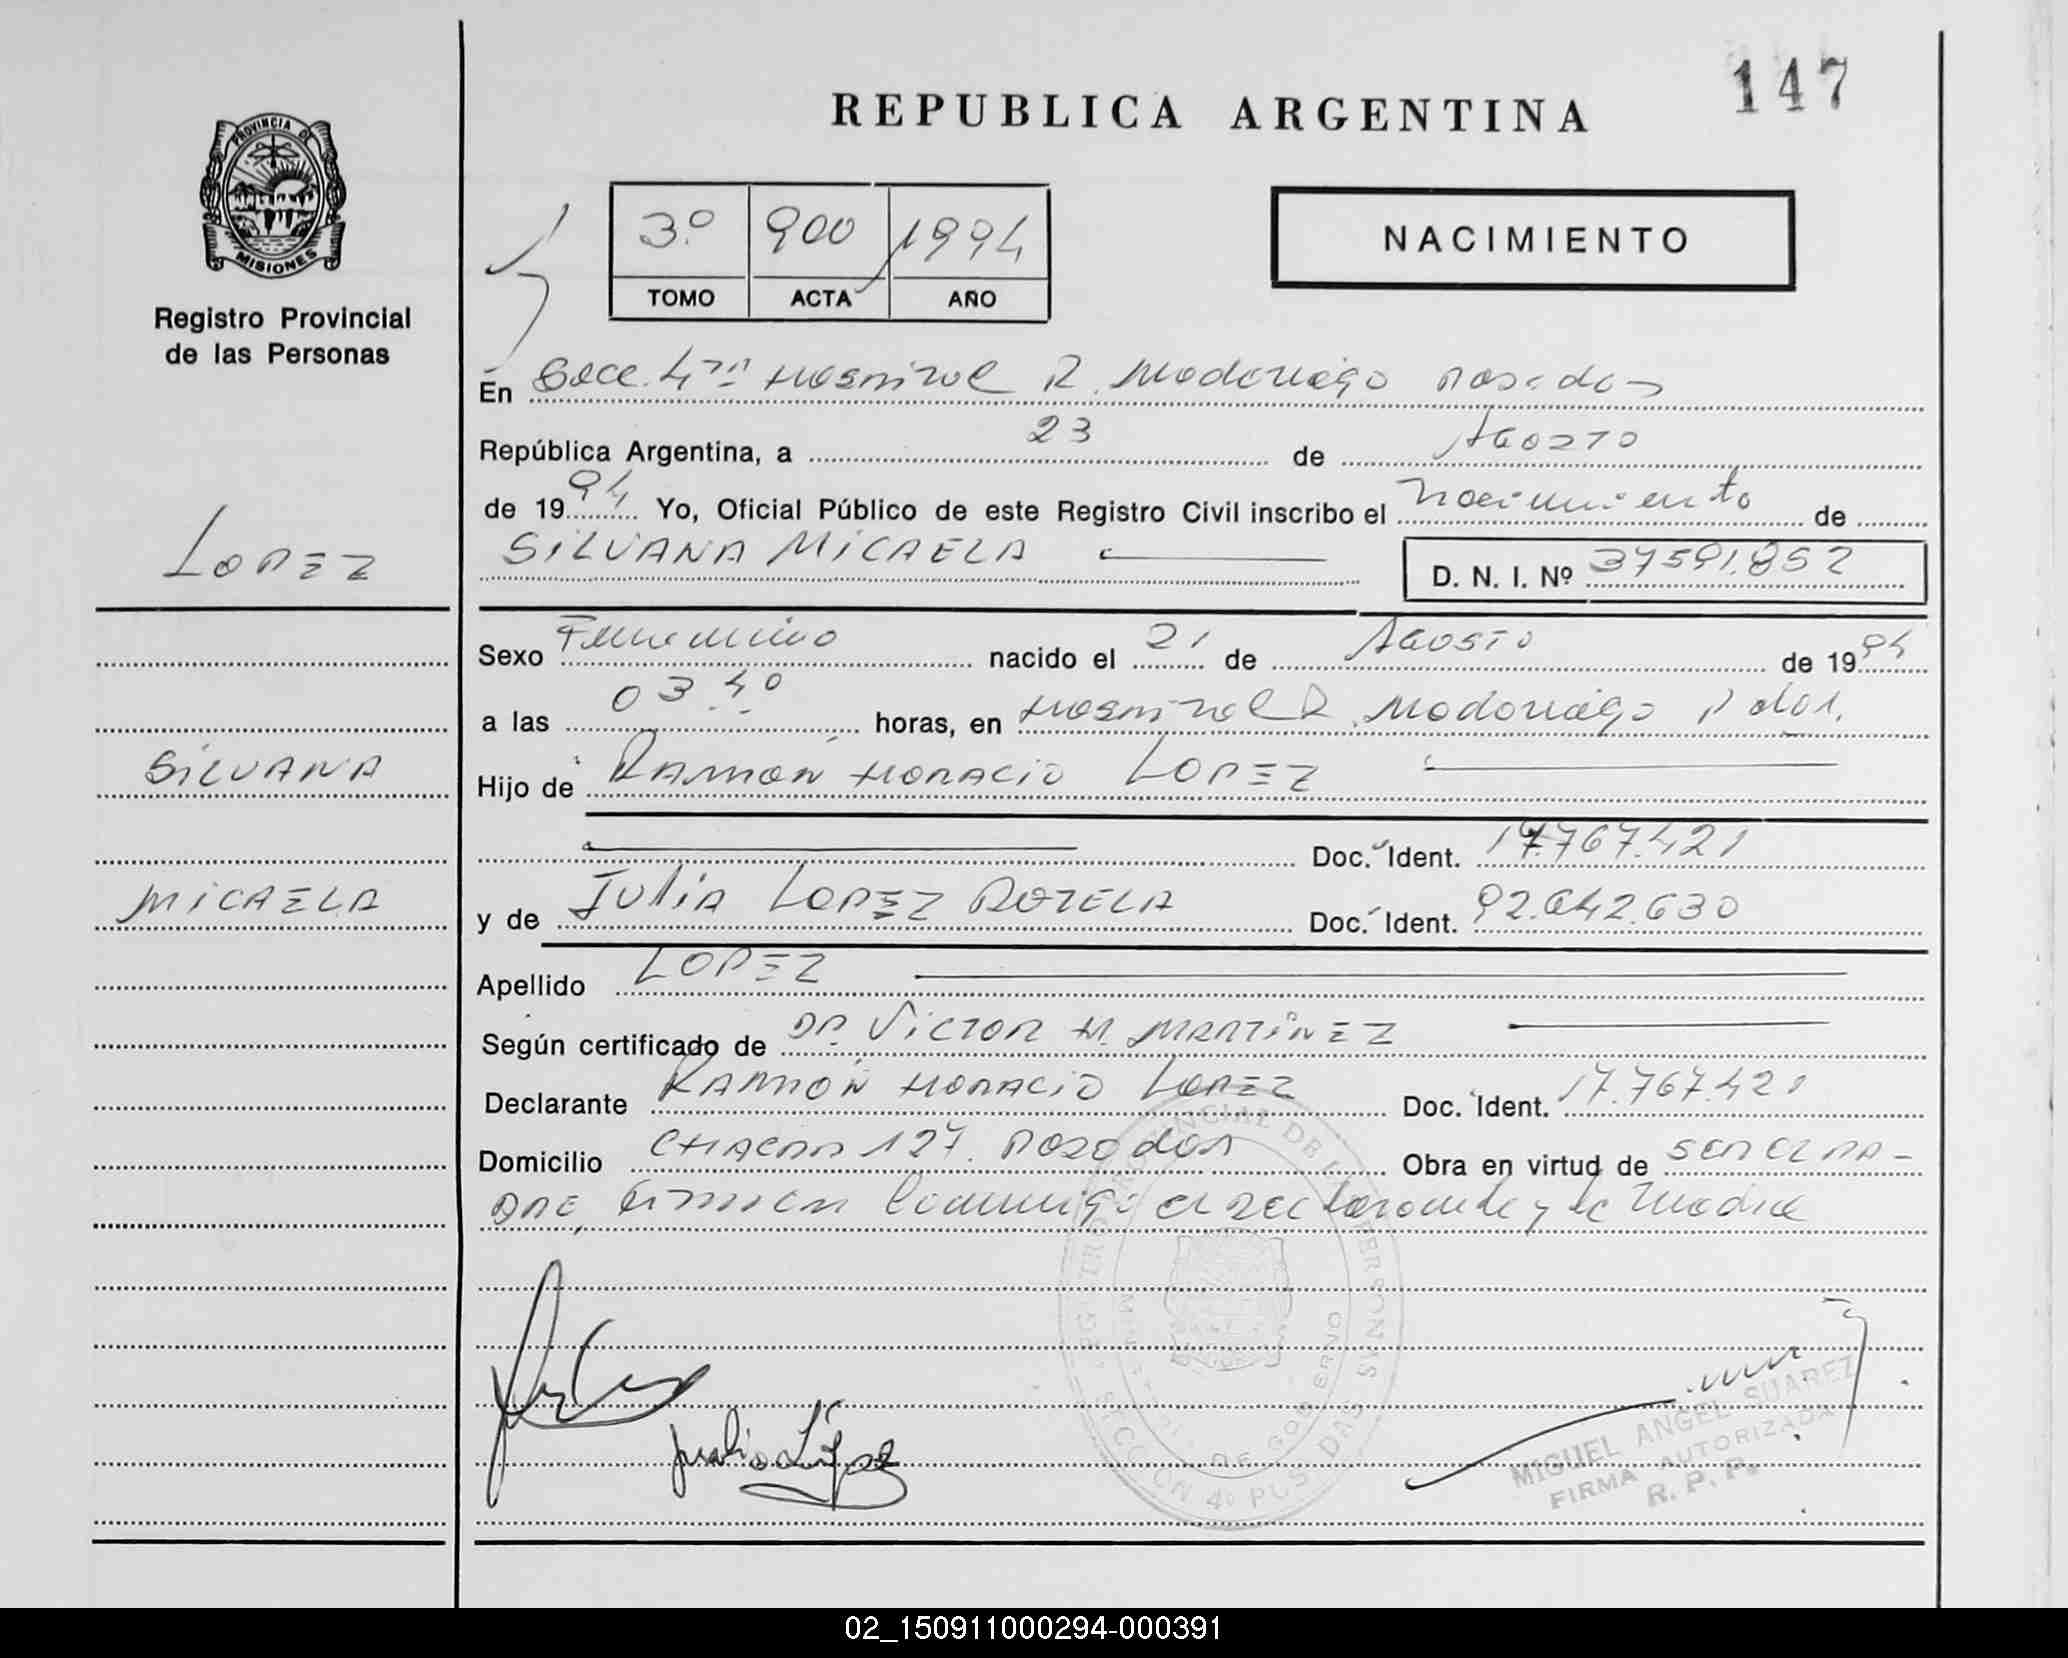 147
REPUBLICA ARGENTINA
PROVINCIA DE
MISIONES
Registro Provincial
de las Personas
3º 900 1994
TOMO ACTA AÑO
NACIMIENTO
En Secc. 4ta Hospital R. Madariaga Posadas
República Argentina, a 23 de Agosto
de 1994 Yo, Oficial Público de este Registro Civil inscribo el nacimiento de
SILVANA MICAELA D. N. I. Nº 37591.852
LOPEZ
Sexo Femenino nacido el 21 de Agosto de 1994
a las 03.40 horas, en Hospital R. Madariaga Pdas.
SILVANA
Hijo de RAMÓN HORACIO LOPEZ
Doc. Ident. 17.767.421
MICAELA
y de JULIA LOPEZ ROTELA Doc. Ident. 92.642.630
Apellido LOPEZ
Según certificado de DR. VICTOR M. MARTINEZ
Declarante RAMÓN HORACIO LOPEZ Doc. Ident. 17.767.421
Domicilio CHACRA 127. POSADAS Obra en virtud de SER EL PA-
DRE, firman conmigo el declarante y la madre
REGISTRO PROVINCIAL DE LAS PERSONAS
SECCION 4º POSADAS
DE GOBIERNO
Julia López
MIGUEL ANGEL SUAREZ
FIRMA AUTORIZADA
R. P. P.
02_150911000294-000391